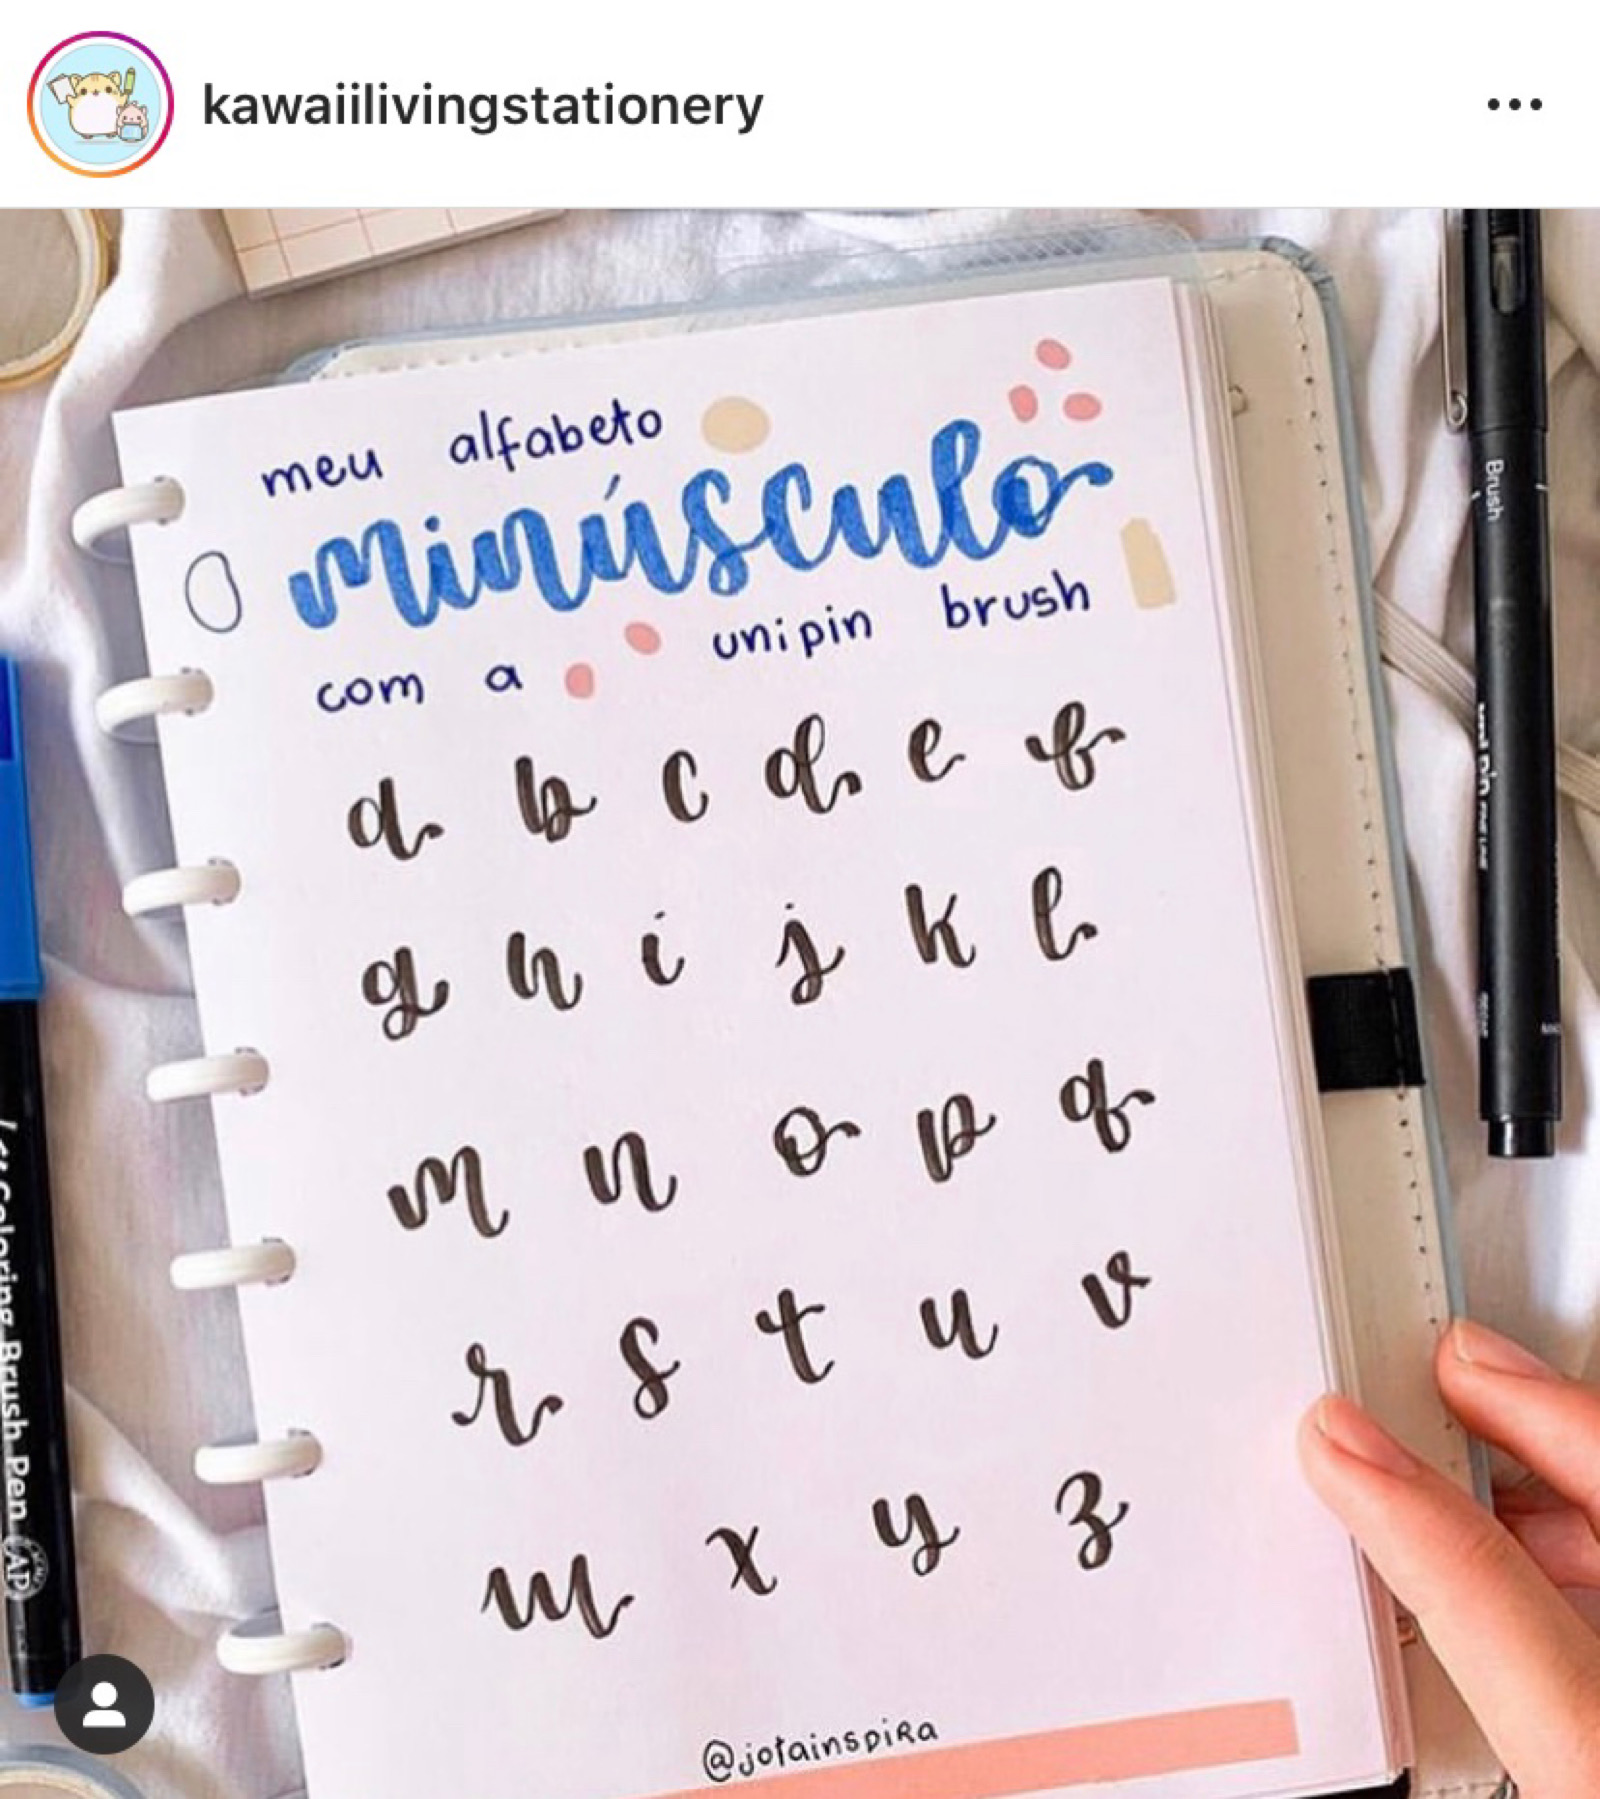 kawaiilivingstationery
meu alfabeto
minúsculo
com a unipin brush
a b c d e f
g h i j k l
m n o p q
r s t u v
w x y z
@jotainspiRa
Brush
uni pin
Coloring Brush Pen AP